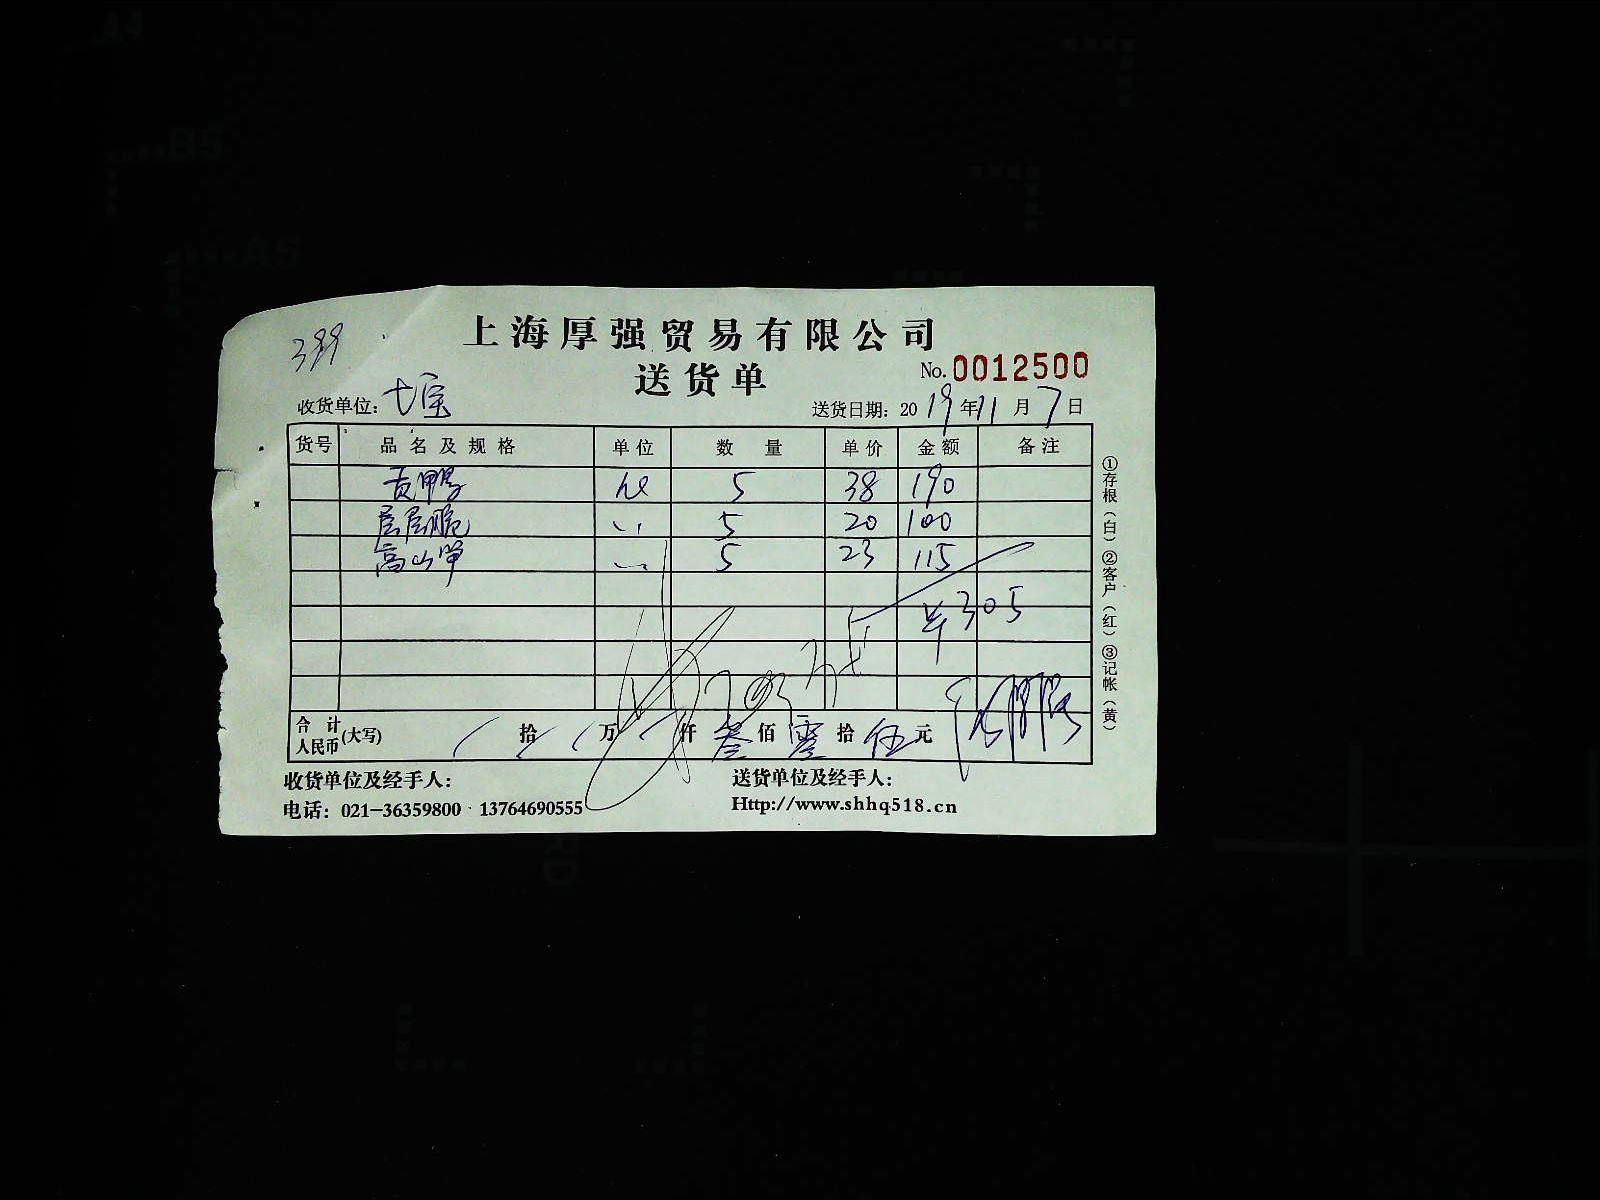 399
上海厚强贸易有限公司
送货单
No. 0012500
收货单位: 七宝
送货日期: 2019年11月7日
货号 品名及规格 单位 数量 单价 金额 备注
贡鸭 5 38 190
层层脆 〃 5 20 100
高山笋 〃 5 23 115
¥305
合计人民币(大写) 拾 万 仟 叁佰零拾伍元
收货单位及经手人:
送货单位及经手人:
电话: 021-36359800 13764690555
Http://www.shhq518.cn
①存根(白)②客户(红)③记帐(黄)